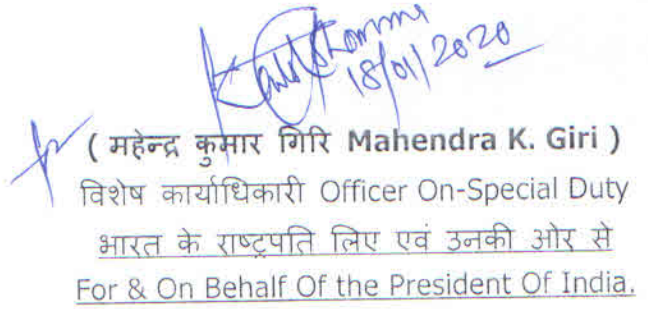 18/01/2020
( महेन्द्र कुमार गिरि Mahendra K. Giri )
विशेष कार्याधिकारी Officer On-Special Duty
भारत के राष्ट्रपति लिए एवं उनकी ओर से
For & On Behalf Of the President Of India.